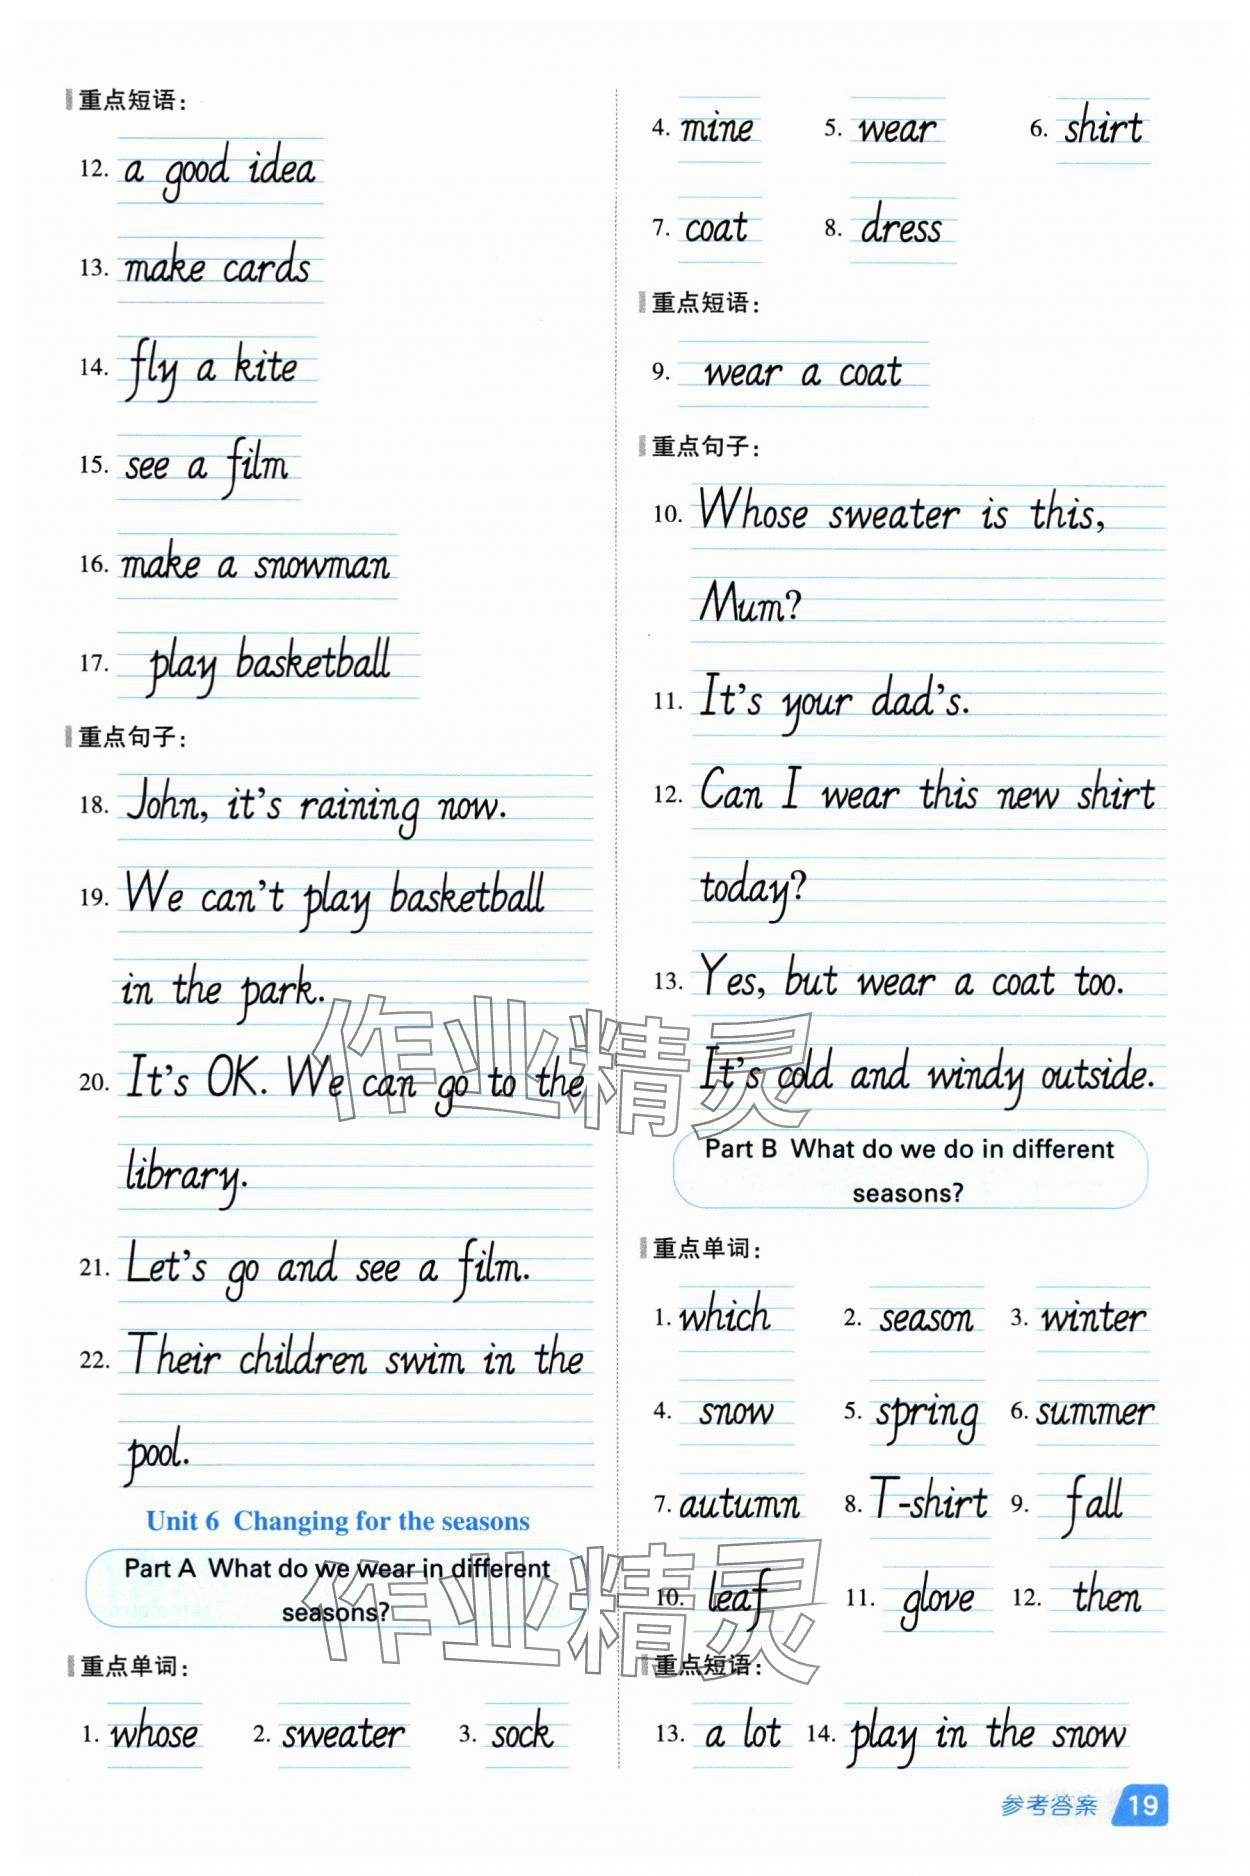 重点短语：
12. a good idea
13. make cards
14. fly a kite
15. see a film
16. make a snowman
17. play basketball
重点句子：
18. John, it's raining now.
19. We can't play basketball
in the park.
20. It's OK. We can go to the
library.
21. Let's go and see a film.
22. Their children swim in the
pool.
Unit 6 Changing for the seasons
Part A What do we wear in different
seasons?
重点单词：
1. whose 2. sweater 3. sock
4. mine 5. wear 6. shirt
7. coat 8. dress
重点短语：
9. wear a coat
重点句子：
10. Whose sweater is this,
Mum?
11. It's your dad's.
12. Can I wear this new shirt
today?
13. Yes, but wear a coat too.
It's cold and windy outside.
Part B What do we do in different
seasons?
重点单词：
1. which 2. season 3. winter
4. snow 5. spring 6. summer
7. autumn 8. T-shirt 9. fall
10. leaf 11. glove 12. then
重点短语：
13. a lot 14. play in the snow
参考答案 19
作业精灵
作业精灵